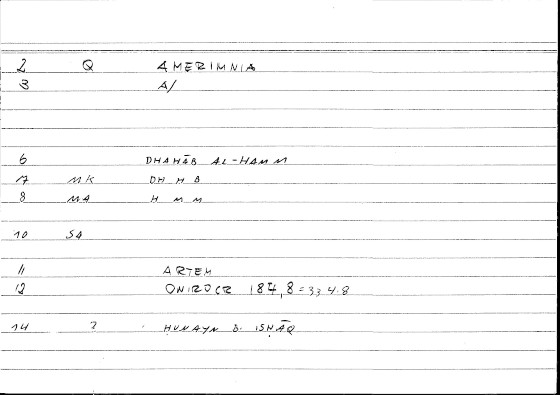 2 Q AMERIMNIA
3 A/
6 DHAHĀB AL-HAMM
17 MK DH H B
8 MA H M M
10 SA
11 ARTEM
12 ONIROCR 187,8=334.8
14 ? HUNAYN B. ISḤĀQ